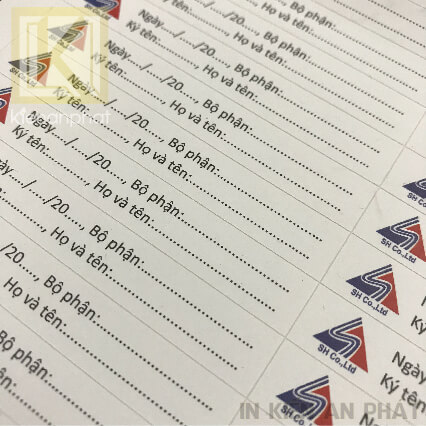 K
kienanphat
SH Co.,Ltd
Ngày..../..../20...., Bộ phận:
Ký tên:..........., Họ và tên:
Ngày..../..../20...., Bộ phận:
Ký tên:..........., Họ và tên:
Ngày..../..../20...., Bộ phận:
Ký tên:..........., Họ và tên:
Ngày..../..../20...., Bộ phận:
Ký tên:..........., Họ và tên:
/20...., Bộ phận:
, Họ và tên:
/20...., Bộ phận:
, Họ và tên:
Bộ phận:
SH Co.,Ltd
SH Co.,Ltd
SH Co.,Ltd
Ngày
Ký tên:
SH Co.,Ltd
IN KIEN AN PHAT